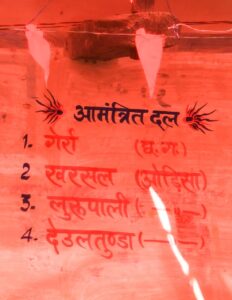 आमंत्रित दल
1. गेर्रा (छ.ग.)
2 खरसल (ओड़िसा)
3. लुहुपाली (—„—)
4. देउलतुण्डा (—„—)